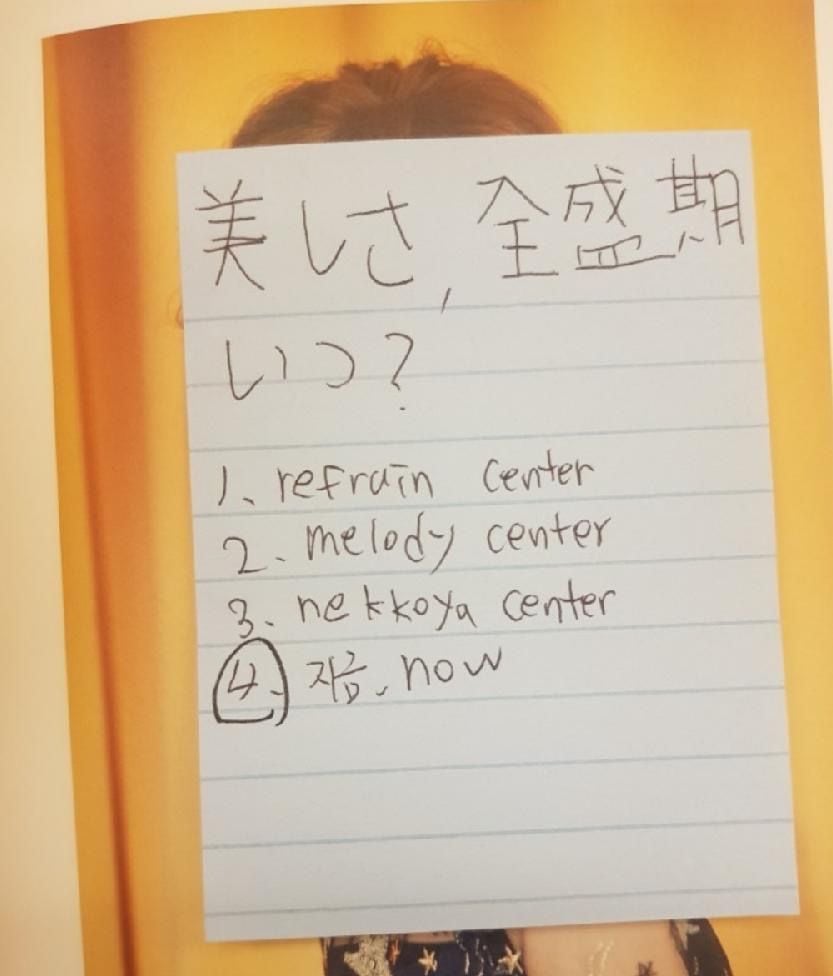 美しさ, 全盛期
いつ?
1. refrain center
2. melody center
3. nekkoya center
4. 지금. now